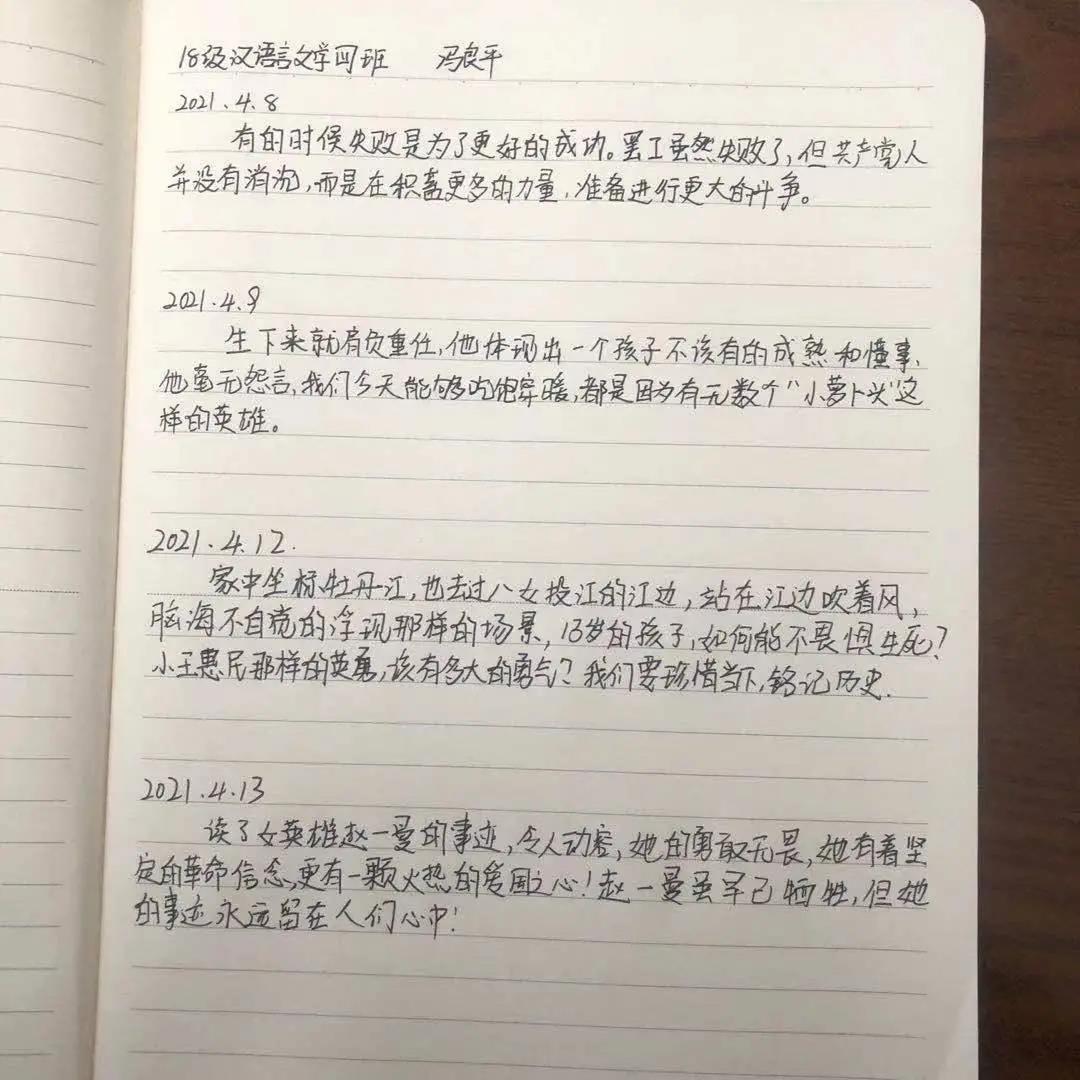 18级汉语言文学四班 冯良平
2021.4.8
有的时候失败是为了更好的成功。罢工虽然失败了，但共产党人
并没有消沉，而是在积蓄更多的力量，准备进行更大的斗争。
2021.4.9
生下来就肩负重任，他体现出一个孩子不该有的成熟和懂事，
他毫无怨言，我们今天能够吃饱穿暖，都是因为有无数个“小萝卜头”这
样的英雄。
2021.4.12.
家中坐标牡丹江，也去过八女投江的江边，站在江边吹着风，
脑海不自觉的浮现那样的场景，13岁的孩子，如何能不畏惧生死？
小王惠民那样的英勇，该有多大的勇气？我们要珍惜当下，铭记历史.
2021.4.13
读了女英雄赵一曼的事迹，令人动容，她的勇敢无畏，她有着坚
定的革命信念，更有一颗火热的爱国之心！赵一曼虽早已牺牲，但她
的事迹永远留在人们心中！